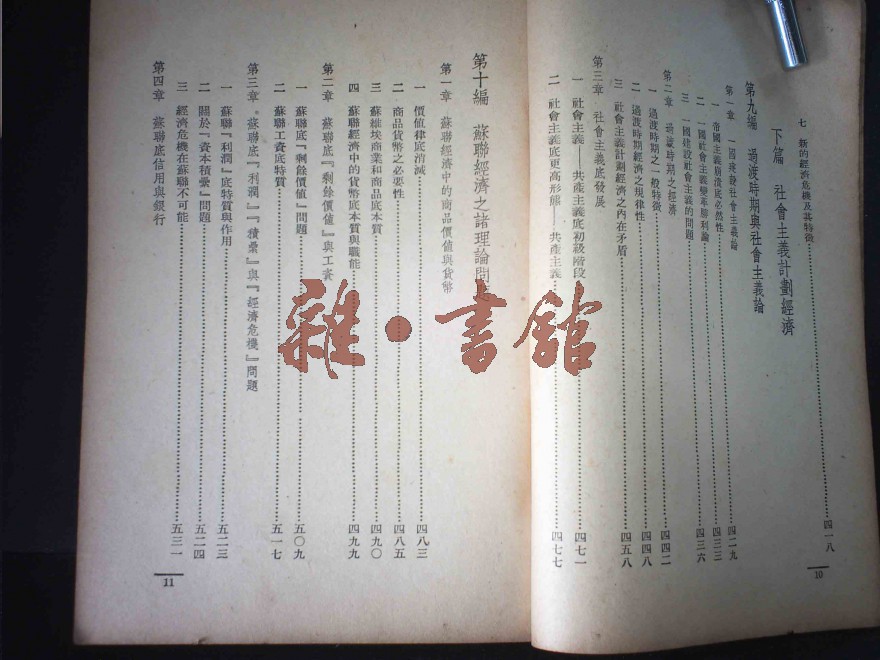 七 新的經濟危機及其特徵……四一八
下篇 社會主義計劃經濟
第九編 過渡時期與社會主義論
第一章 一國建設社會主義論
一 帝國主義崩潰底必然性……四二九
二 一國社會主義變革勝利論……四三三
三 一國建設社會主義的問題……四三六
第二章 過渡時期之經濟
一 過渡時期之一般特徵……四四二
二 過渡時期經濟之規律性……四四八
三 社會主義計劃經濟之內在矛盾……四五八
第三章 社會主義底發展
一 社會主義——共產主義底初級階段……四七一
二 社會主義底更高形態——共產主義……四七七
10
第十編 蘇聯經濟之諸理論問
第一章 蘇聯經濟中的商品價值與貨幣
一 價值律底消滅……四八三
二 商品貨幣之必要性……四八五
三 蘇維埃商業和商品底本質……四九〇
四 蘇聯經濟中的貨幣底本質與職能……四九九
第二章 蘇聯底『剩餘價值』與工資
一 蘇聯底『剩餘價值』問題……五〇九
二 蘇聯工資底特質……五一七
第三章 蘇聯底『利潤』『積纍』與『經濟危機』問題
一 蘇聯『利潤』底特質與作用……五二三
二 關於『資本積纍』問題……五二四
三 經濟危機在蘇聯不可能……五三一
第四章 蘇聯底信用與銀行
11
雜·書館